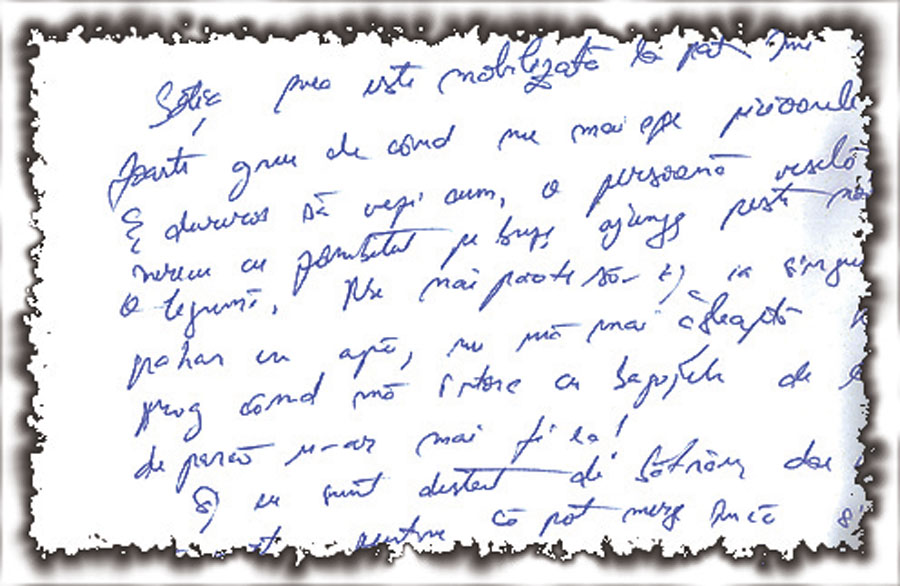 Soția mea este mobilizată la pat. Îmi
foarte grea de când nu mai are picioarele
E dureros să vezi cum, o persoană veselă
mereu cu zâmbetul pe buze ajunge peste
o legumă. Nu mai poate să-și ia singură
pahar cu apă, nu mă mai așteaptă
prag când mă întorc cu bagajele de
de parcă n-ar mai fi ea!
Și eu sunt destul de bătrân, dar
pentru că pot merge încă și